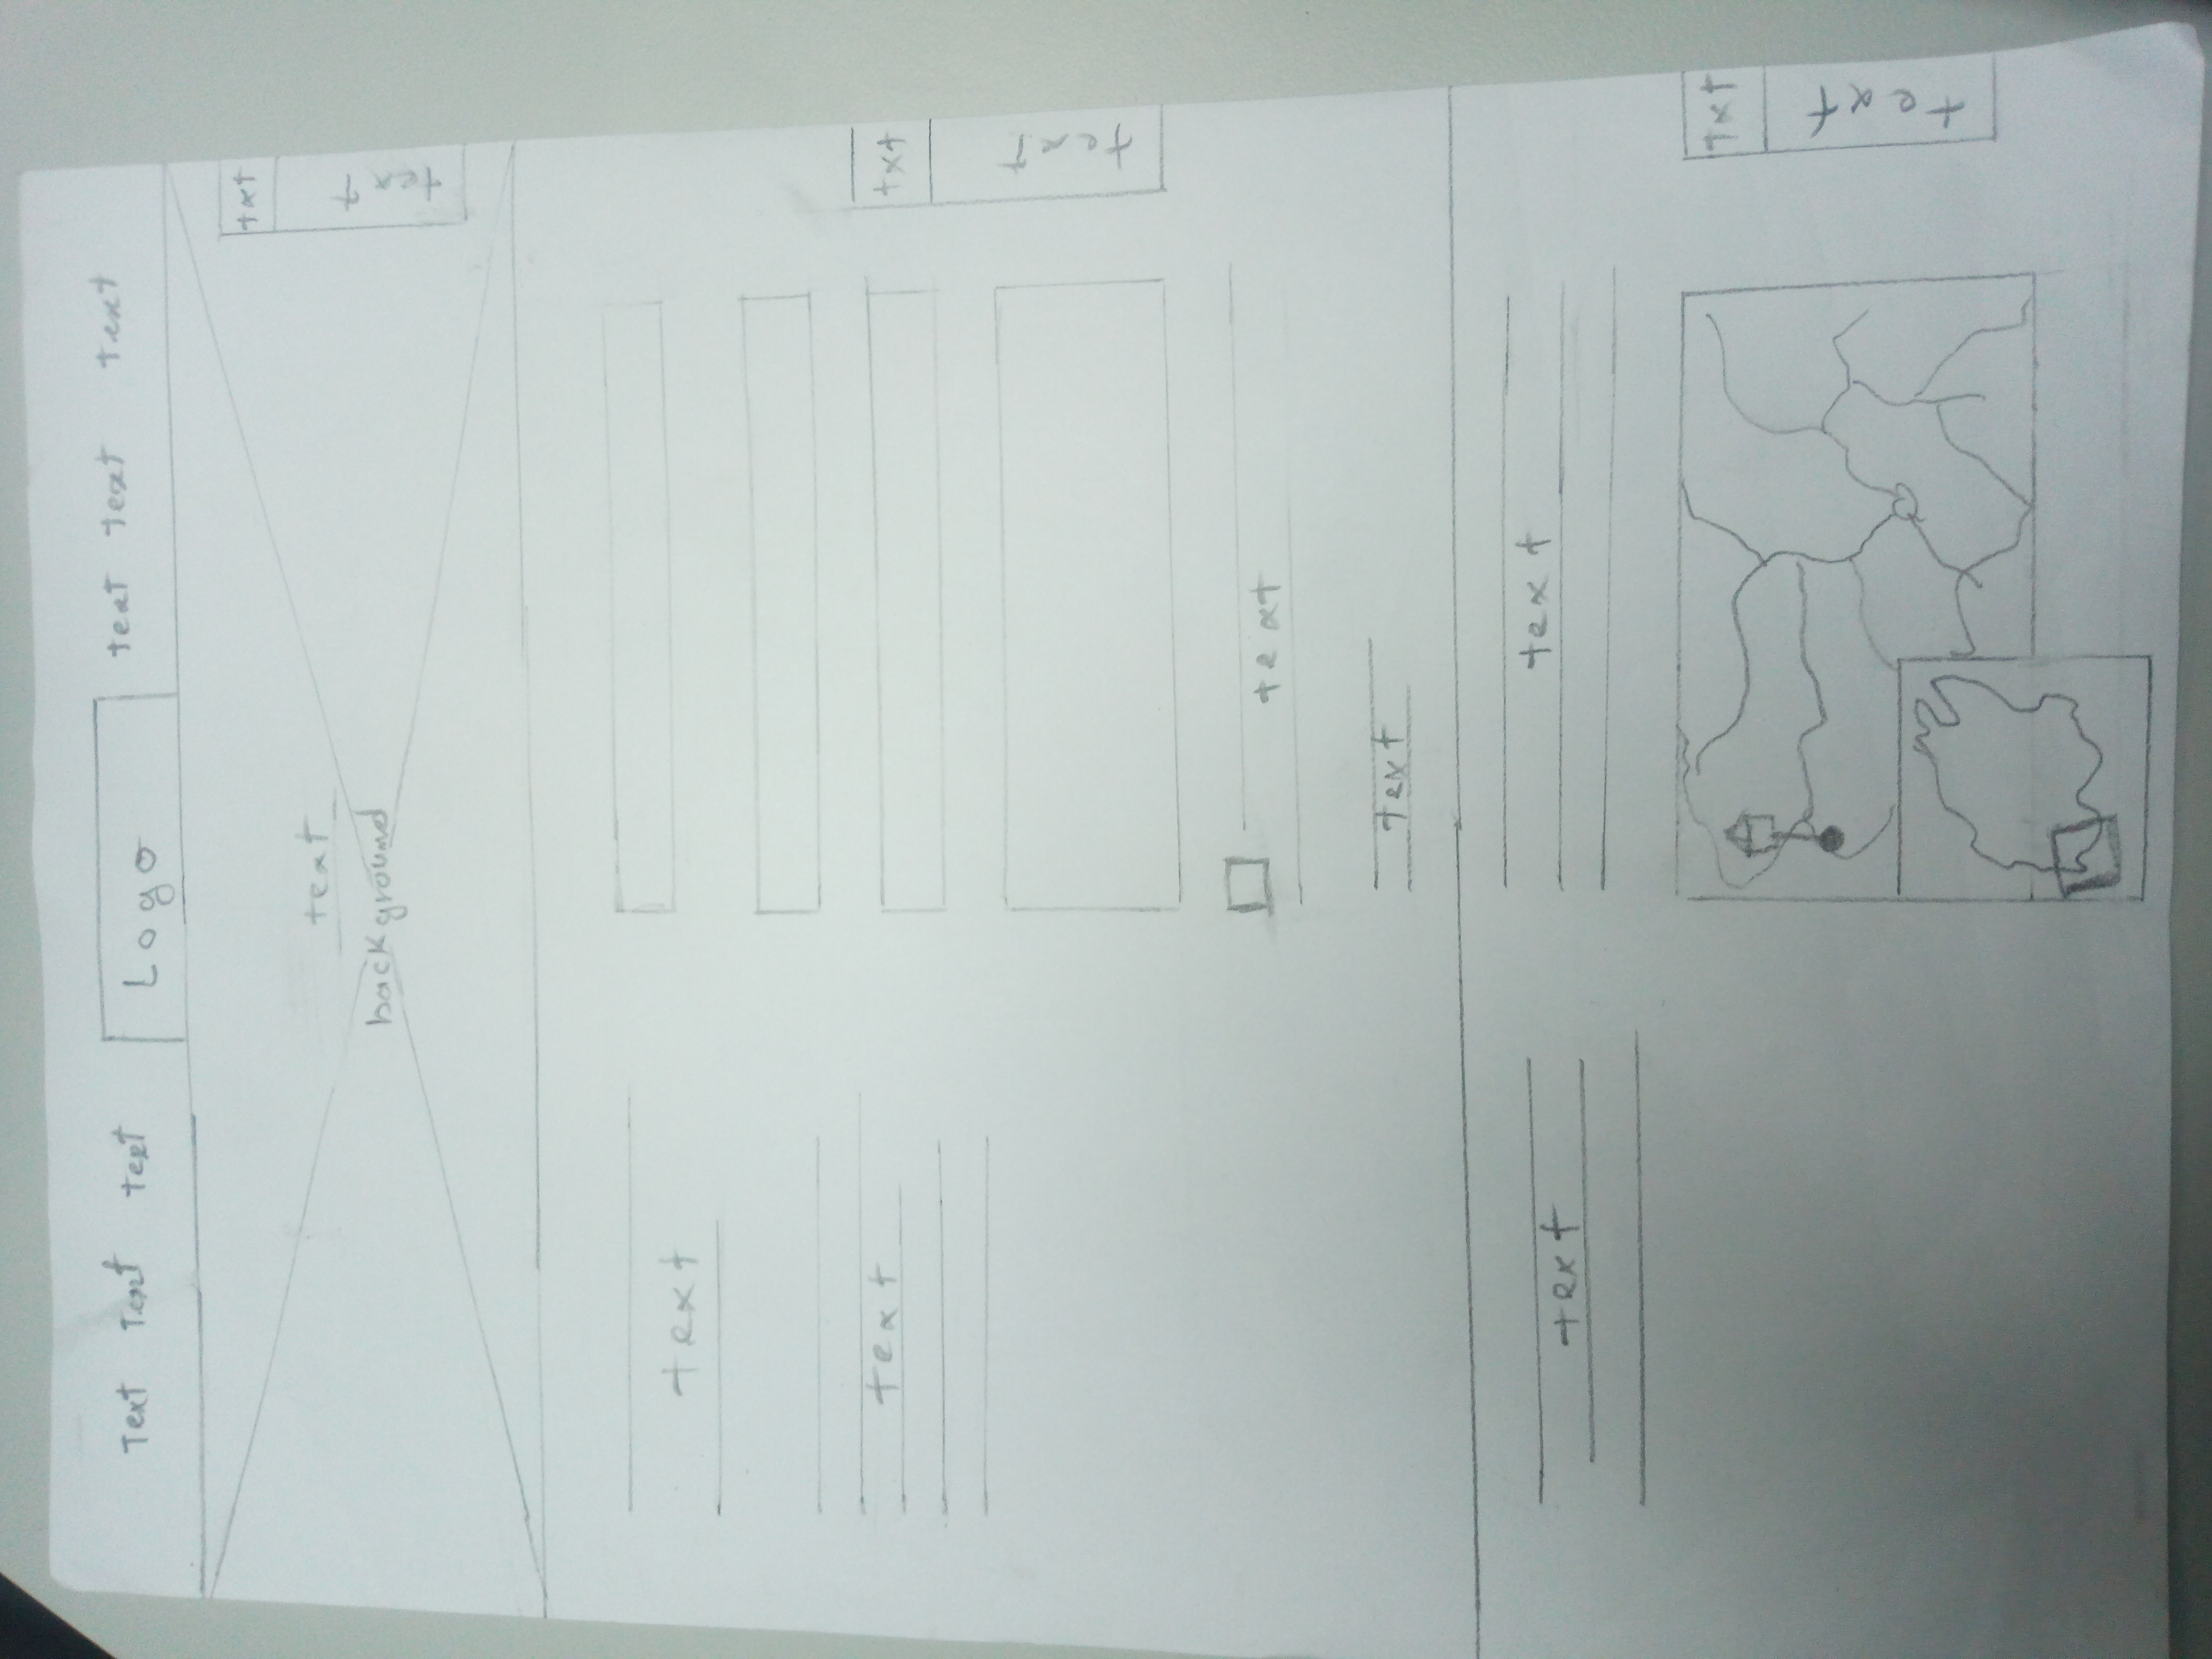 Text Text Text Logo text text text
txt
text
text
background
text
txt
text
text
text
text
text
text
text
txt
text